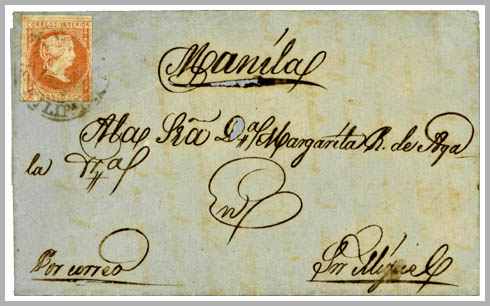 CORREOS INTERIOR
FRANCO
LIPA
Manila
A la Sra. Da. Margarita R. de Aya
la
En
Por correo Sn Miguel